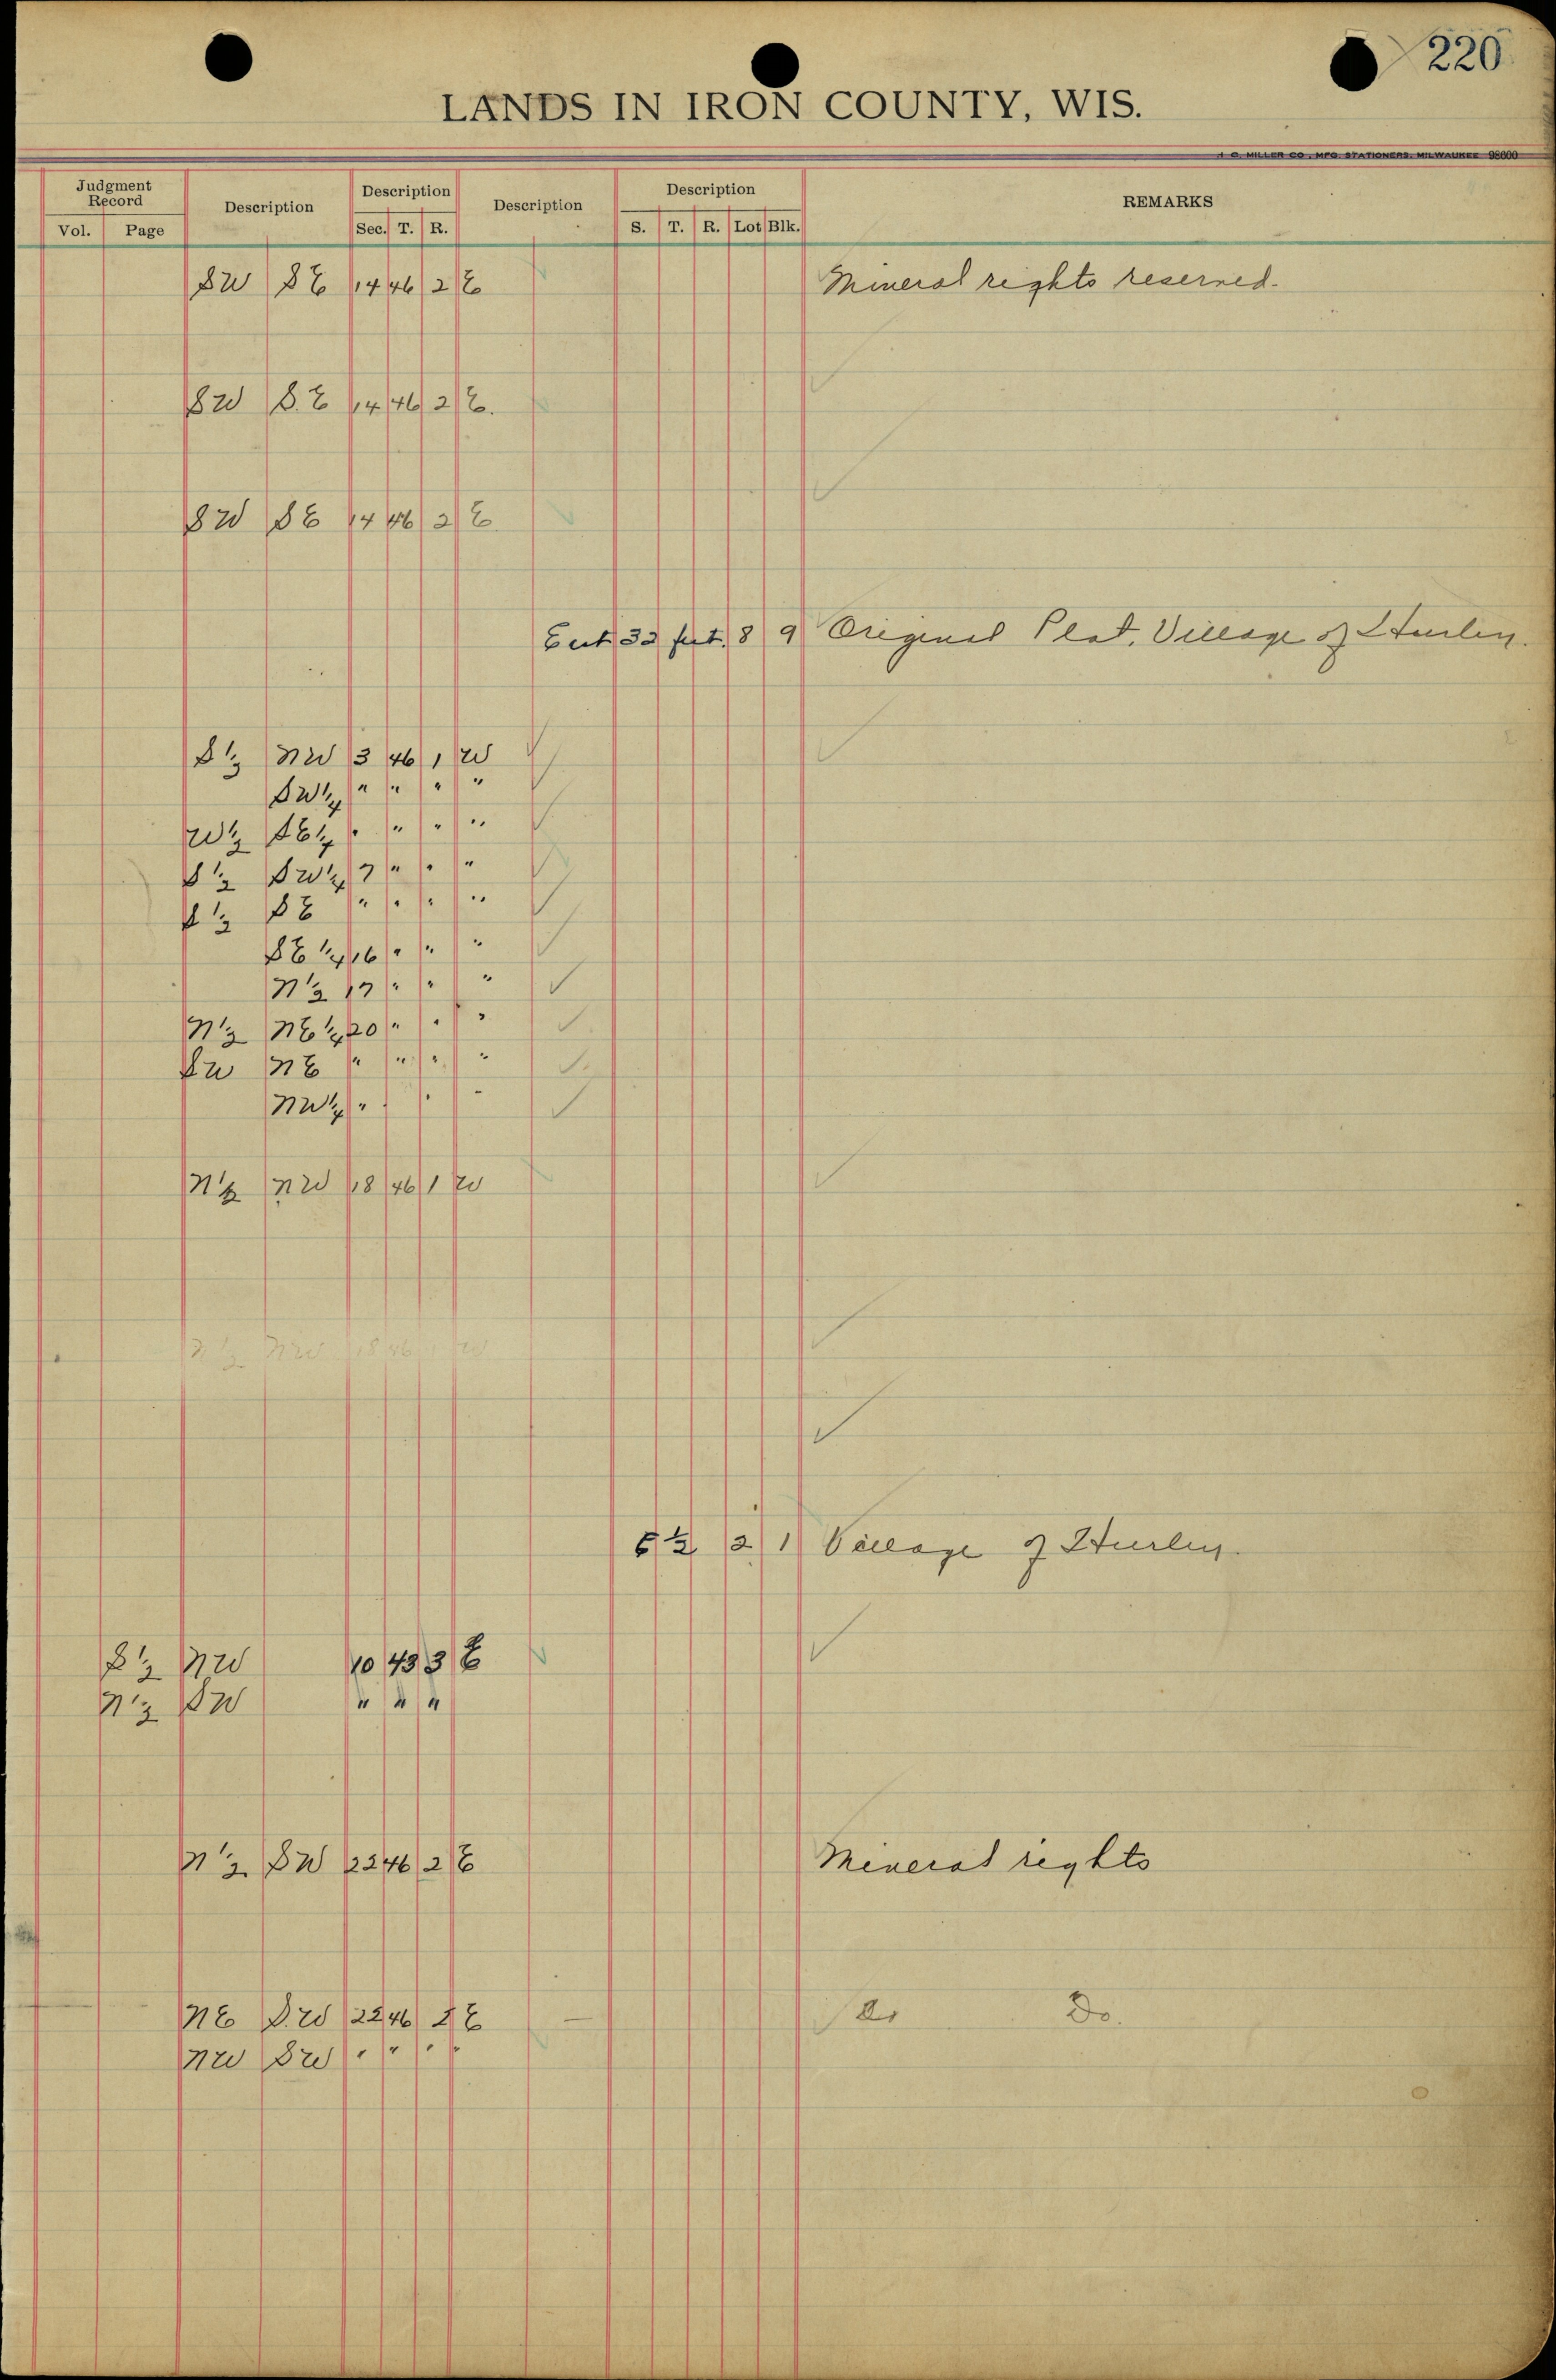 220
LANDS IN IRON COUNTY, WIS.
H. C. MILLER CO., MFG. STATIONERS, MILWAUKEE 98000
Judgment Record Description Description Description Description REMARKS
Vol. Page Sec. T. R. S. T. R. Lot Blk.
SW SE 14 46 2 E Mineral rights reserved.
SW S.E 14 46 2 E.
SW SE 14 46 2 E
East 32 feet. 8 9 Original Plat, Village of Hurley.
S 1/2 NW 3 46 1 W
SW 1/4 " " " "
W 1/2 SE 1/4 " " " "
S 1/2 SW 1/4 7 " " "
S 1/2 SE " " " "
SE 1/4 16 " " "
N 1/2 17 " " "
N 1/2 NE 1/4 20 " " "
SW NE " " " "
NW 1/4 " " " "
N 1/2 NW 18 46 1 W
N 1/2 NW 18 46 1 W
E 1/2 2 1 Village of Hurley.
S 1/2 NW 10 43 3 E
N 1/2 SW " " "
N 1/2 SW 22 46 2 E Mineral rights
NE S.W 22 46 2 E Do Do.
NW SW " " " "